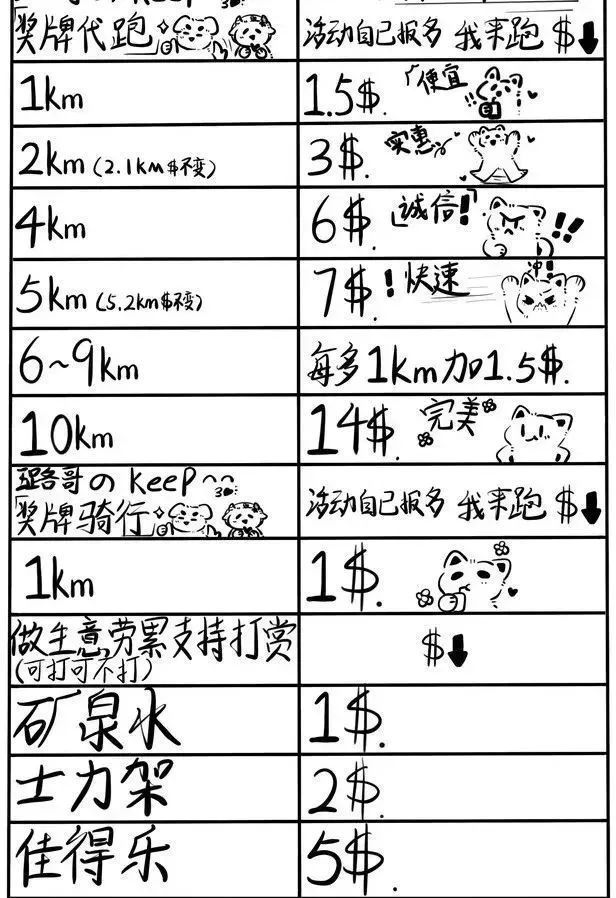 奖牌代跑 活动自己报名 我来跑 $⬇
1km 1.5$. 「便宜!!
2km (2.1km$不变) 3$. 实惠
4km 6$. 「诚信!」 !!
5km (5.2km$不变) 7$. ! 快速 冲!
6~9km 每多1km加1.5$.
10km 14$. 完美
哥の Keep
「奖牌骑行 活动自己报名 我来跑 $⬇
1km 1$.
做生意劳累支持打赏 $⬇
(可打可不打)
矿泉水 1$.
士力架 2$.
佳得乐 5$.